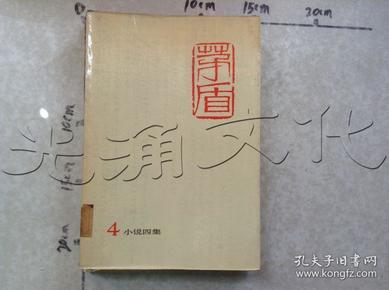 0
10cm
15cm
20cm
茅盾
10cm
光涌文化
15cm
4 小说四集
20cm
孔夫子旧书网
www.kongfz.com